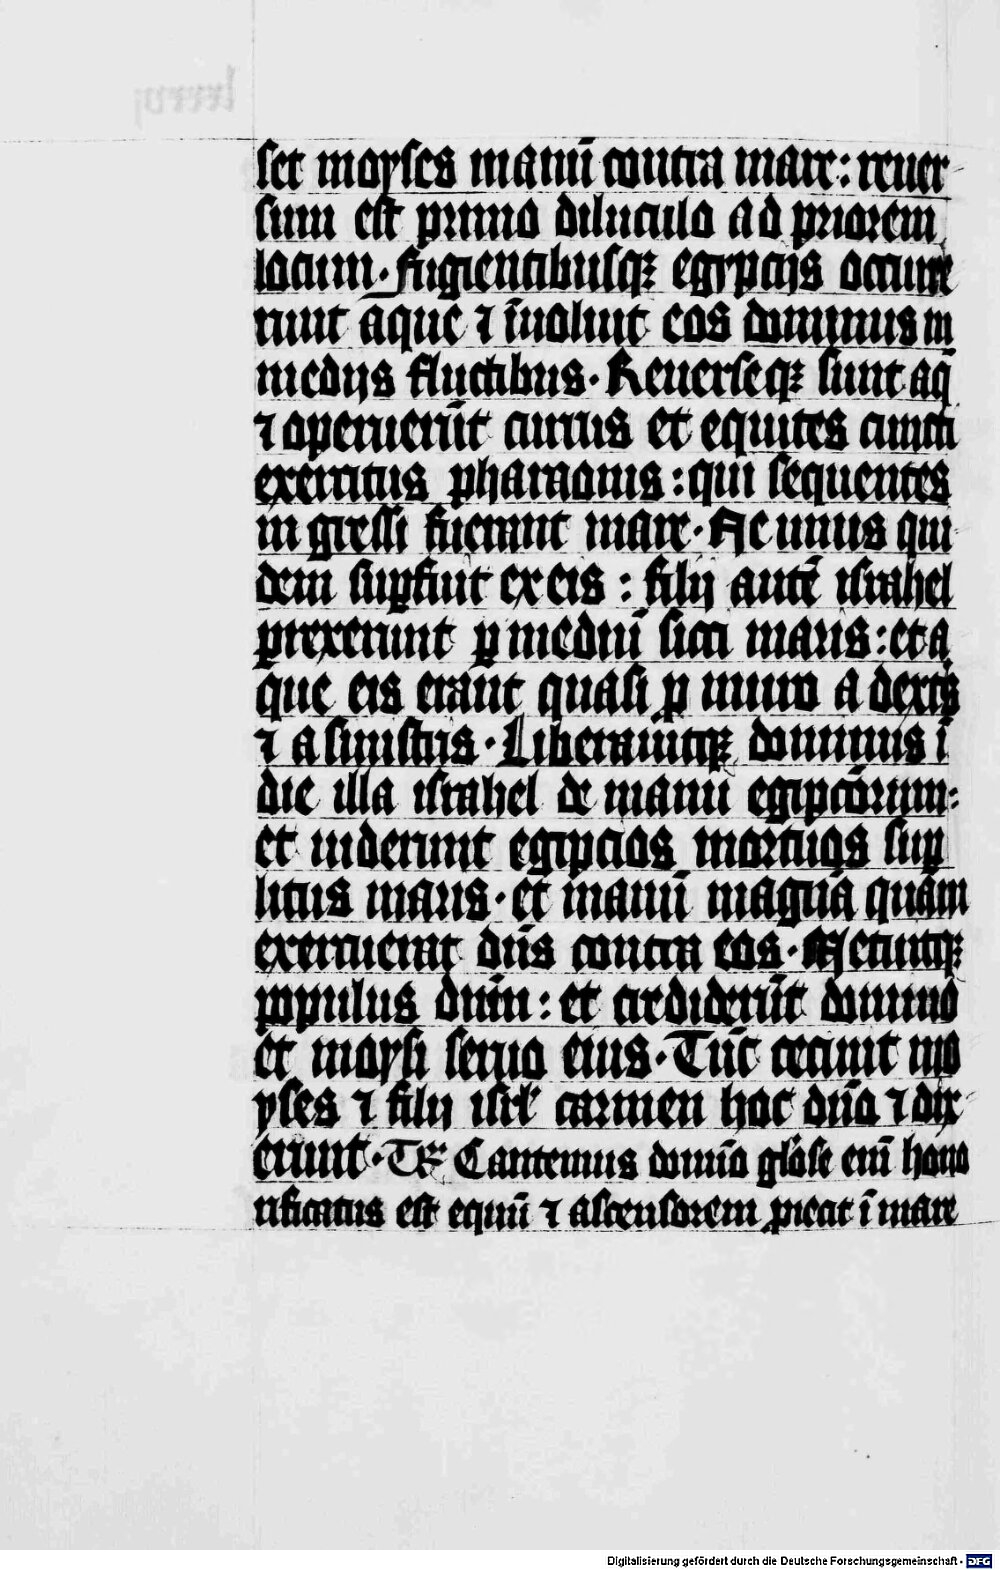 set moyses manū contra mare: reuer
sum est primo diluculo ad priorem
locum. fugientibusqꝫ egypcijs occurre
runt aque ⁊ īuoluit eos dominus in
medijs fluctibus. Reuerseqꝫ sunt aq̄
⁊ operuerūt currus et equites cuncti
exercitus pharaonis: qui sequentes
in gressi fuerunt mare. Nec unus qui
dem suꝑfuit ex eis: filij autē israhel
ꝑrexerunt ꝑ mediū sicci maris: et a
que eis erant quasi ꝓ muro a dextris
⁊ a sinistris. Liberauitqꝫ dominus ī
die illa israhel de manu egipciorum:
et uiderunt egipcios mortuos suꝑ
litus maris. et manū magnā quam
exercuerat dn̄s contra eos. Metuitqꝫ
populus dn̄m: et crediderūt domino
et moysi seruo eius. Tūc cecinit mo
yses ⁊ filij isrl̄ carmen hoc dn̄o ⁊ dix
erunt. Tr̄ Cantemus domīo gl̄ose enī hono
rificatus est equū ⁊ ascensorem ꝓiecit ī mare
Digitalisierung gefördert durch die Deutsche Forschungsgemeinschaft - DFG